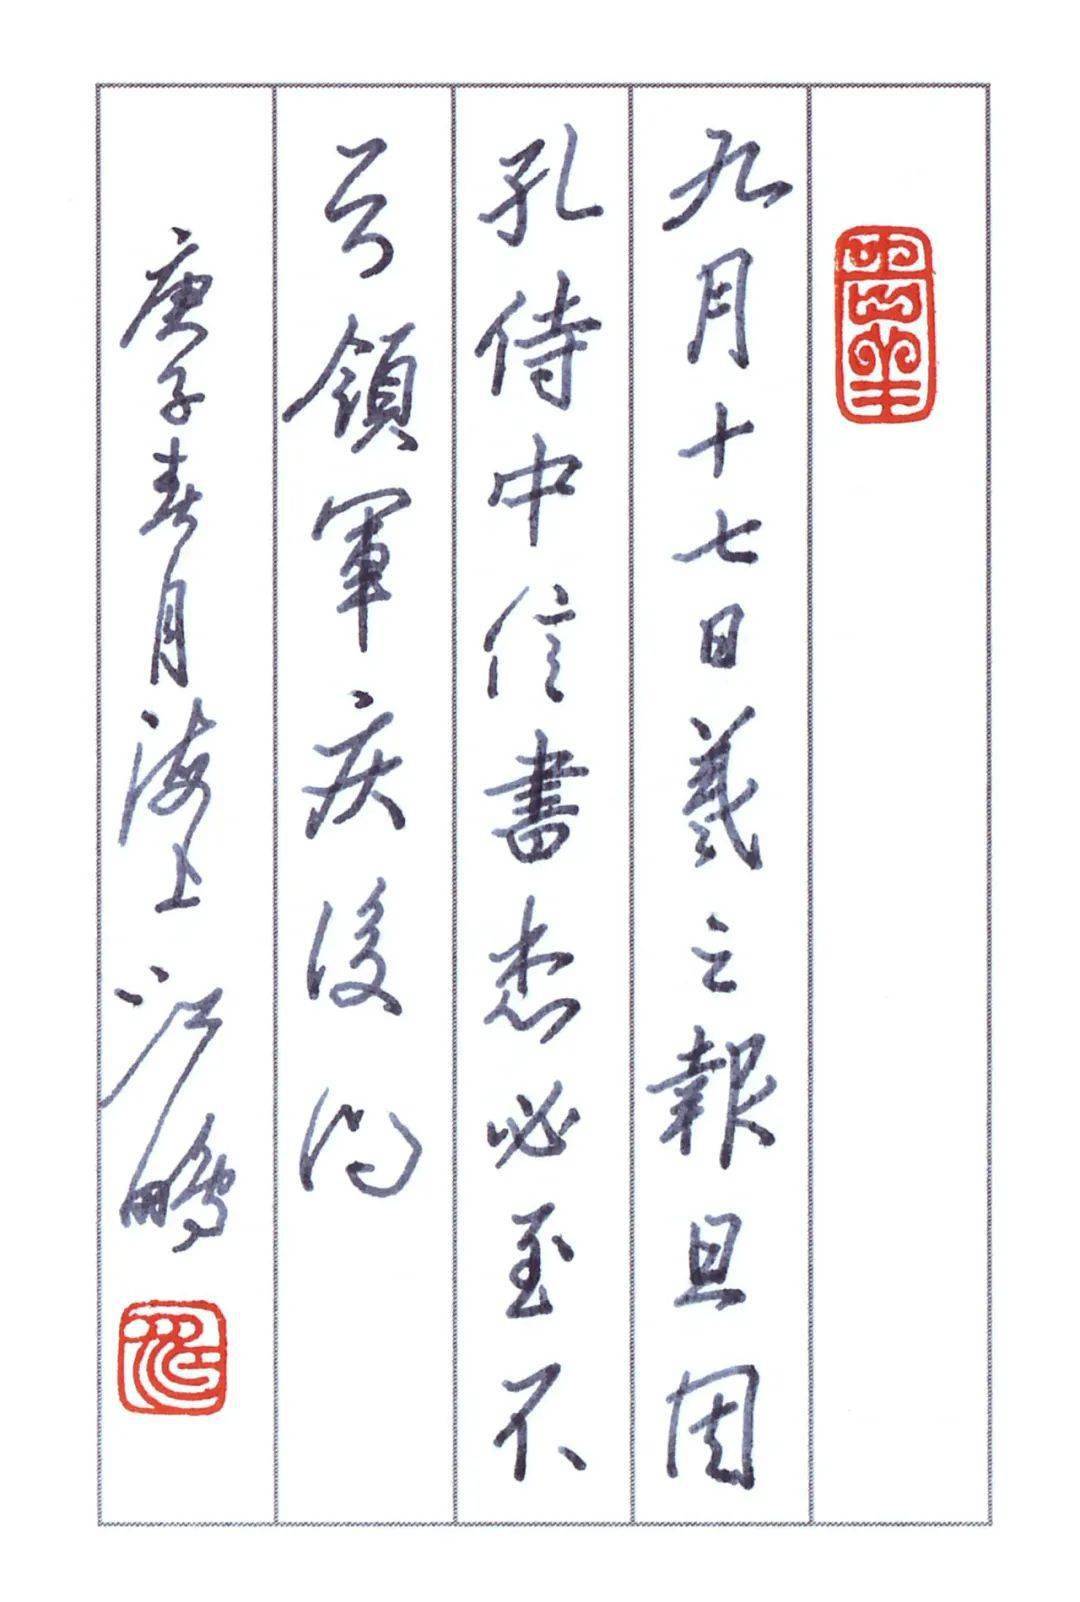 九月十七日羲之報且因
孔侍中信書想必至不
知領軍疾後問
庚子春月海上江鹏